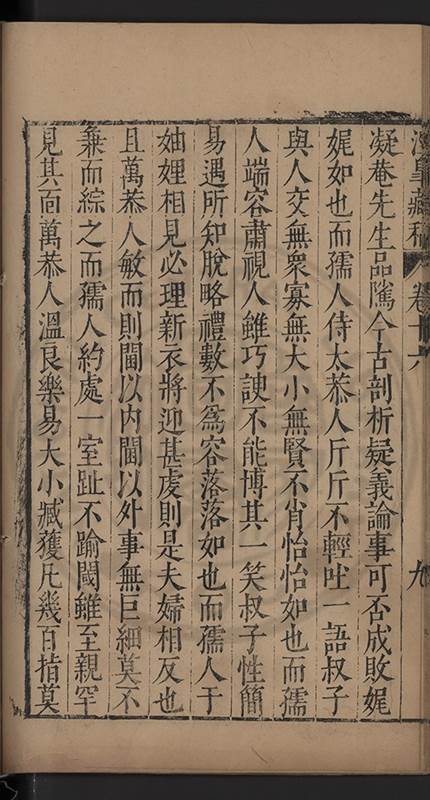 藏稿 卷十六 九
凝菴先生品隲今古剖析疑義論事可否成敗娓
娓如也而孺人侍太恭人斤斤不輕吐一語叔子
與人交無衆寡無大小無賢不肖怡怡如也而孺
人端容肅視人雖巧諛不能博其一笑叔子性簡
易遇所知脫略禮數不爲容落落如也而孺人于
妯娌相見必理新衣將迎甚虔則是夫婦相反也
且萬恭人敏而則閫以內閫以外事無巨細莫不
兼而綜之而孺人約處一室趾不踰閾雖至親罕
見其面萬恭人溫良樂易大小臧獲凡幾百指莫